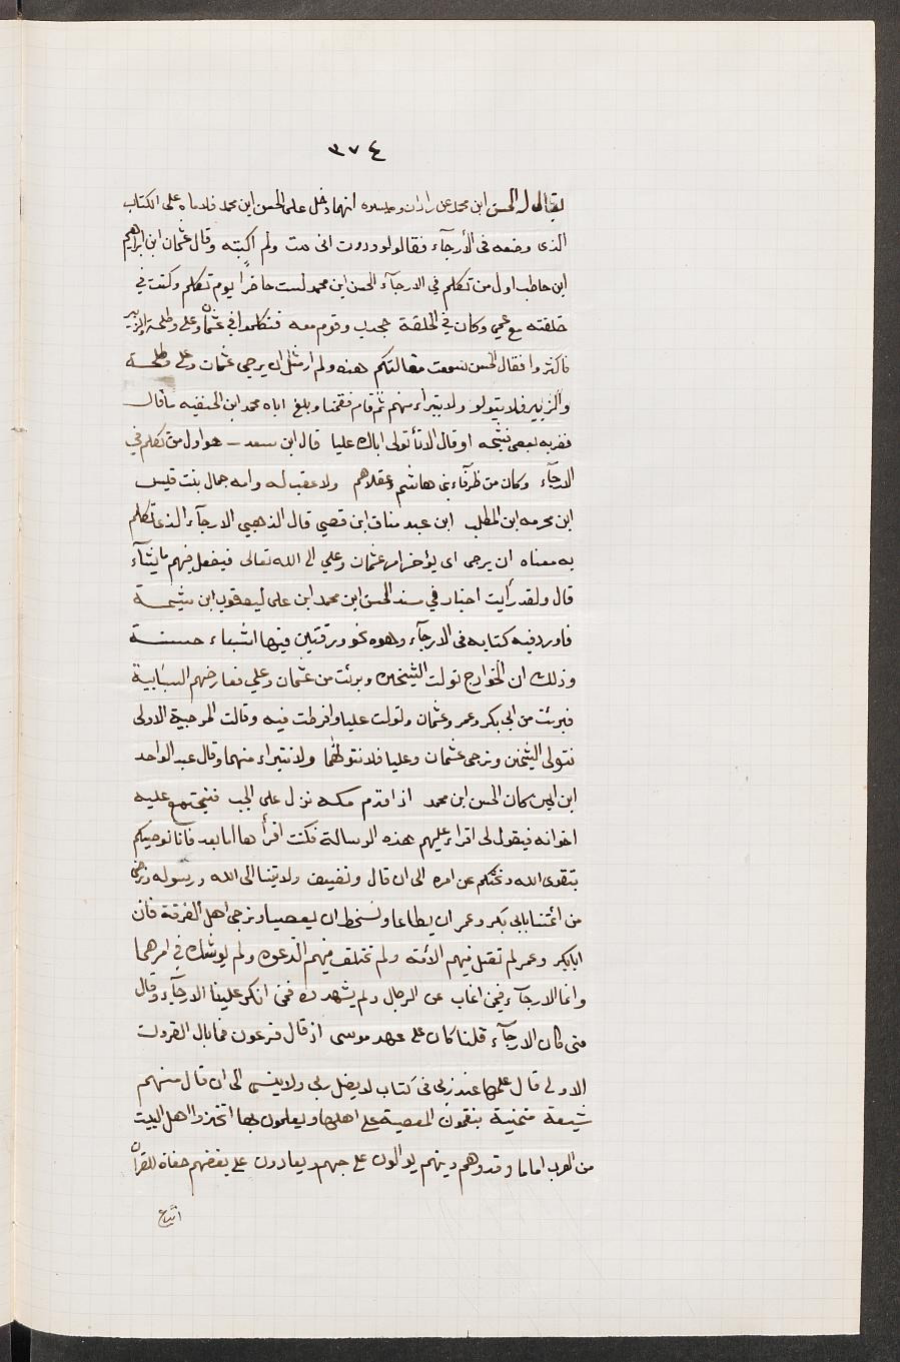 ٣٧٤
الحسن ابن محمد عن زاذان وميسره انهما دخل على الحسن ابن محمد فلاماه على الكتاب
الذى وضعه فى الأرجآء فقال لو لوددت انى مت ولم اكتبه وقال عثمان ابن ابراهيم
ابن حاطب اول من تكلم في الارجآء الحسن ابن محمد لست حاضرا يوم تكلم وكنت في
حلقته مع عمي وكان في الحلقة جحدب وقوم معه فتكلموا في عثمان وعلي وطلحة والزبير
فاكثروا فقال الحسن سمعت مقالتكم هذه ولم ار مثل ان يرجى عثمان وعلي وطلحة
والزبير فلا يتولو ولا يتبراء منهم ثم قام فقمنا وبلغ اباه محمد ابن الحنفيه ما قال
فضربه بعصى فشجه او قال الا تأتولى اباك عليا قال ابن سعد هو اول من تكلم في
الارجآء وكان من ظرفآء بنى هاشم وعقلاهم ولا عقب له وامه جمال بنت قيس
ابن مخرمه ابن المطلب ابن عبد مناف ابن قصي قال الذهبي الارجآء الذى تكلم
به معناه ان يرجى اى يؤاخر امر عثمان وعلي الى الله تعالى فيفعل فيهم ما يشآء
قال ولقد رأيت اخبار في مسند الحسن ابن محمد ابن على ليعقوب ابن شيبة
فاورد فيه كتابه فى الارجآء وهوه نحو ورقتين فيها اشياء حسنة
وذلك ان الخوارج تولت الشيخين وبرئت من عثمان وعلي فعارضهم السبابية
فبرئت من ابى بكر وعمر وعثمان وتولت عليا وافرطت فيه وقالت المرجية الاولى
نتولى الشيخين ونرجى عثمان وعليا فلا نتولهما ولا نتبراء منهما وقال عبد الواحد
ابن ايمن كان الحسن ابن محمد اذا قدم مكه نزل على ابى فيجتمع عليه
اخوانه فيقول لى اقراء عليهم هذه الرسالة فكنت اقرأها اما بعد فانا نوصيكم
بتقوى الله ونحثكم على امره الى ان قال ونضيف ولايتنا الى الله ورسوله ونرضى
من ائمتنا بابى بكر وعمر ان يطاعا ونسخط ان يعصيا ونرجى اهل الفرقة فان
ابابكر وعمر لم تقتل فيهم الأمة ولم تختلف فيهم الدعوه ولم يوشك في امرهما
وانما الارجآء فيمن اغاب عن الرجال ولم يشهدوه فمن انكر علينا الارجآء وقال
متى كان الارجآء قلنا كان على عهد موسى اذ قال فرعون فما بال القرون
الاولى قال علمها عند ربى فى كتاب لا يضل ربى ولا ينسى الى ان قال منهم
شيعة متمنية ينقمون المعصية على اهلها ويعملون بها اتخذوا اهل البيت
من العرب اماما وقدوهم دينهم يوالون على حبهم ويعادون على بغضهم جفاة للقرآن
اتباع